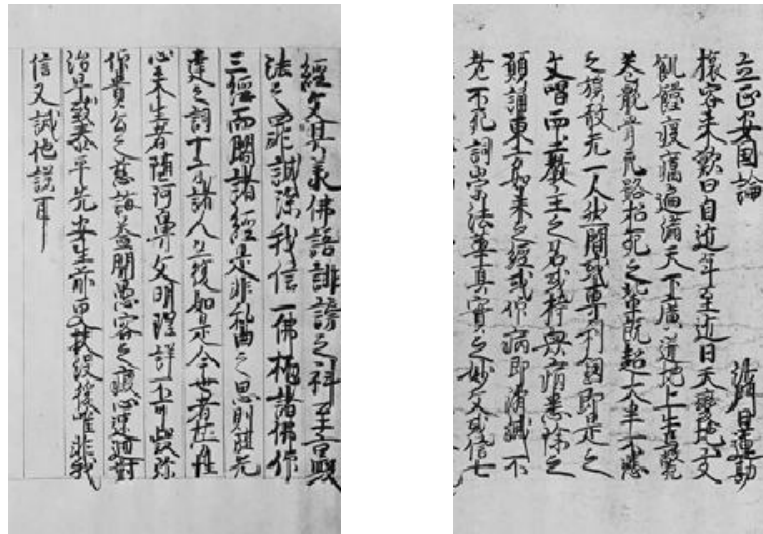 立正安国論　沙門日蓮勘
旅客来歎曰自近年至近日天變地夭
飢饉疫癘遍満天下廣迸地上牛馬斃
巷骸骨充路招死之輩既超大半不悲
之族敢无一人然間或専利釼即是之
文唱西土教主之名或持衆病悉除之
願誦東方如来之經或仰病即消滅不
老不死詞崇法華真實之妙文或信七
經文其義佛語誹謗之科至重毀
法之罪誠深我信一佛抛諸佛仰
三經而閣諸經是非私曲之思則随先
達之詞十方諸人亦復如是今世者労性
心来生者堕阿鼻文明理詳不可疑弥
仰貴公之慈誨益開愚客之癡心速廻對
治早致泰平先安生前更扶没後唯非我
信又誡他誤耳